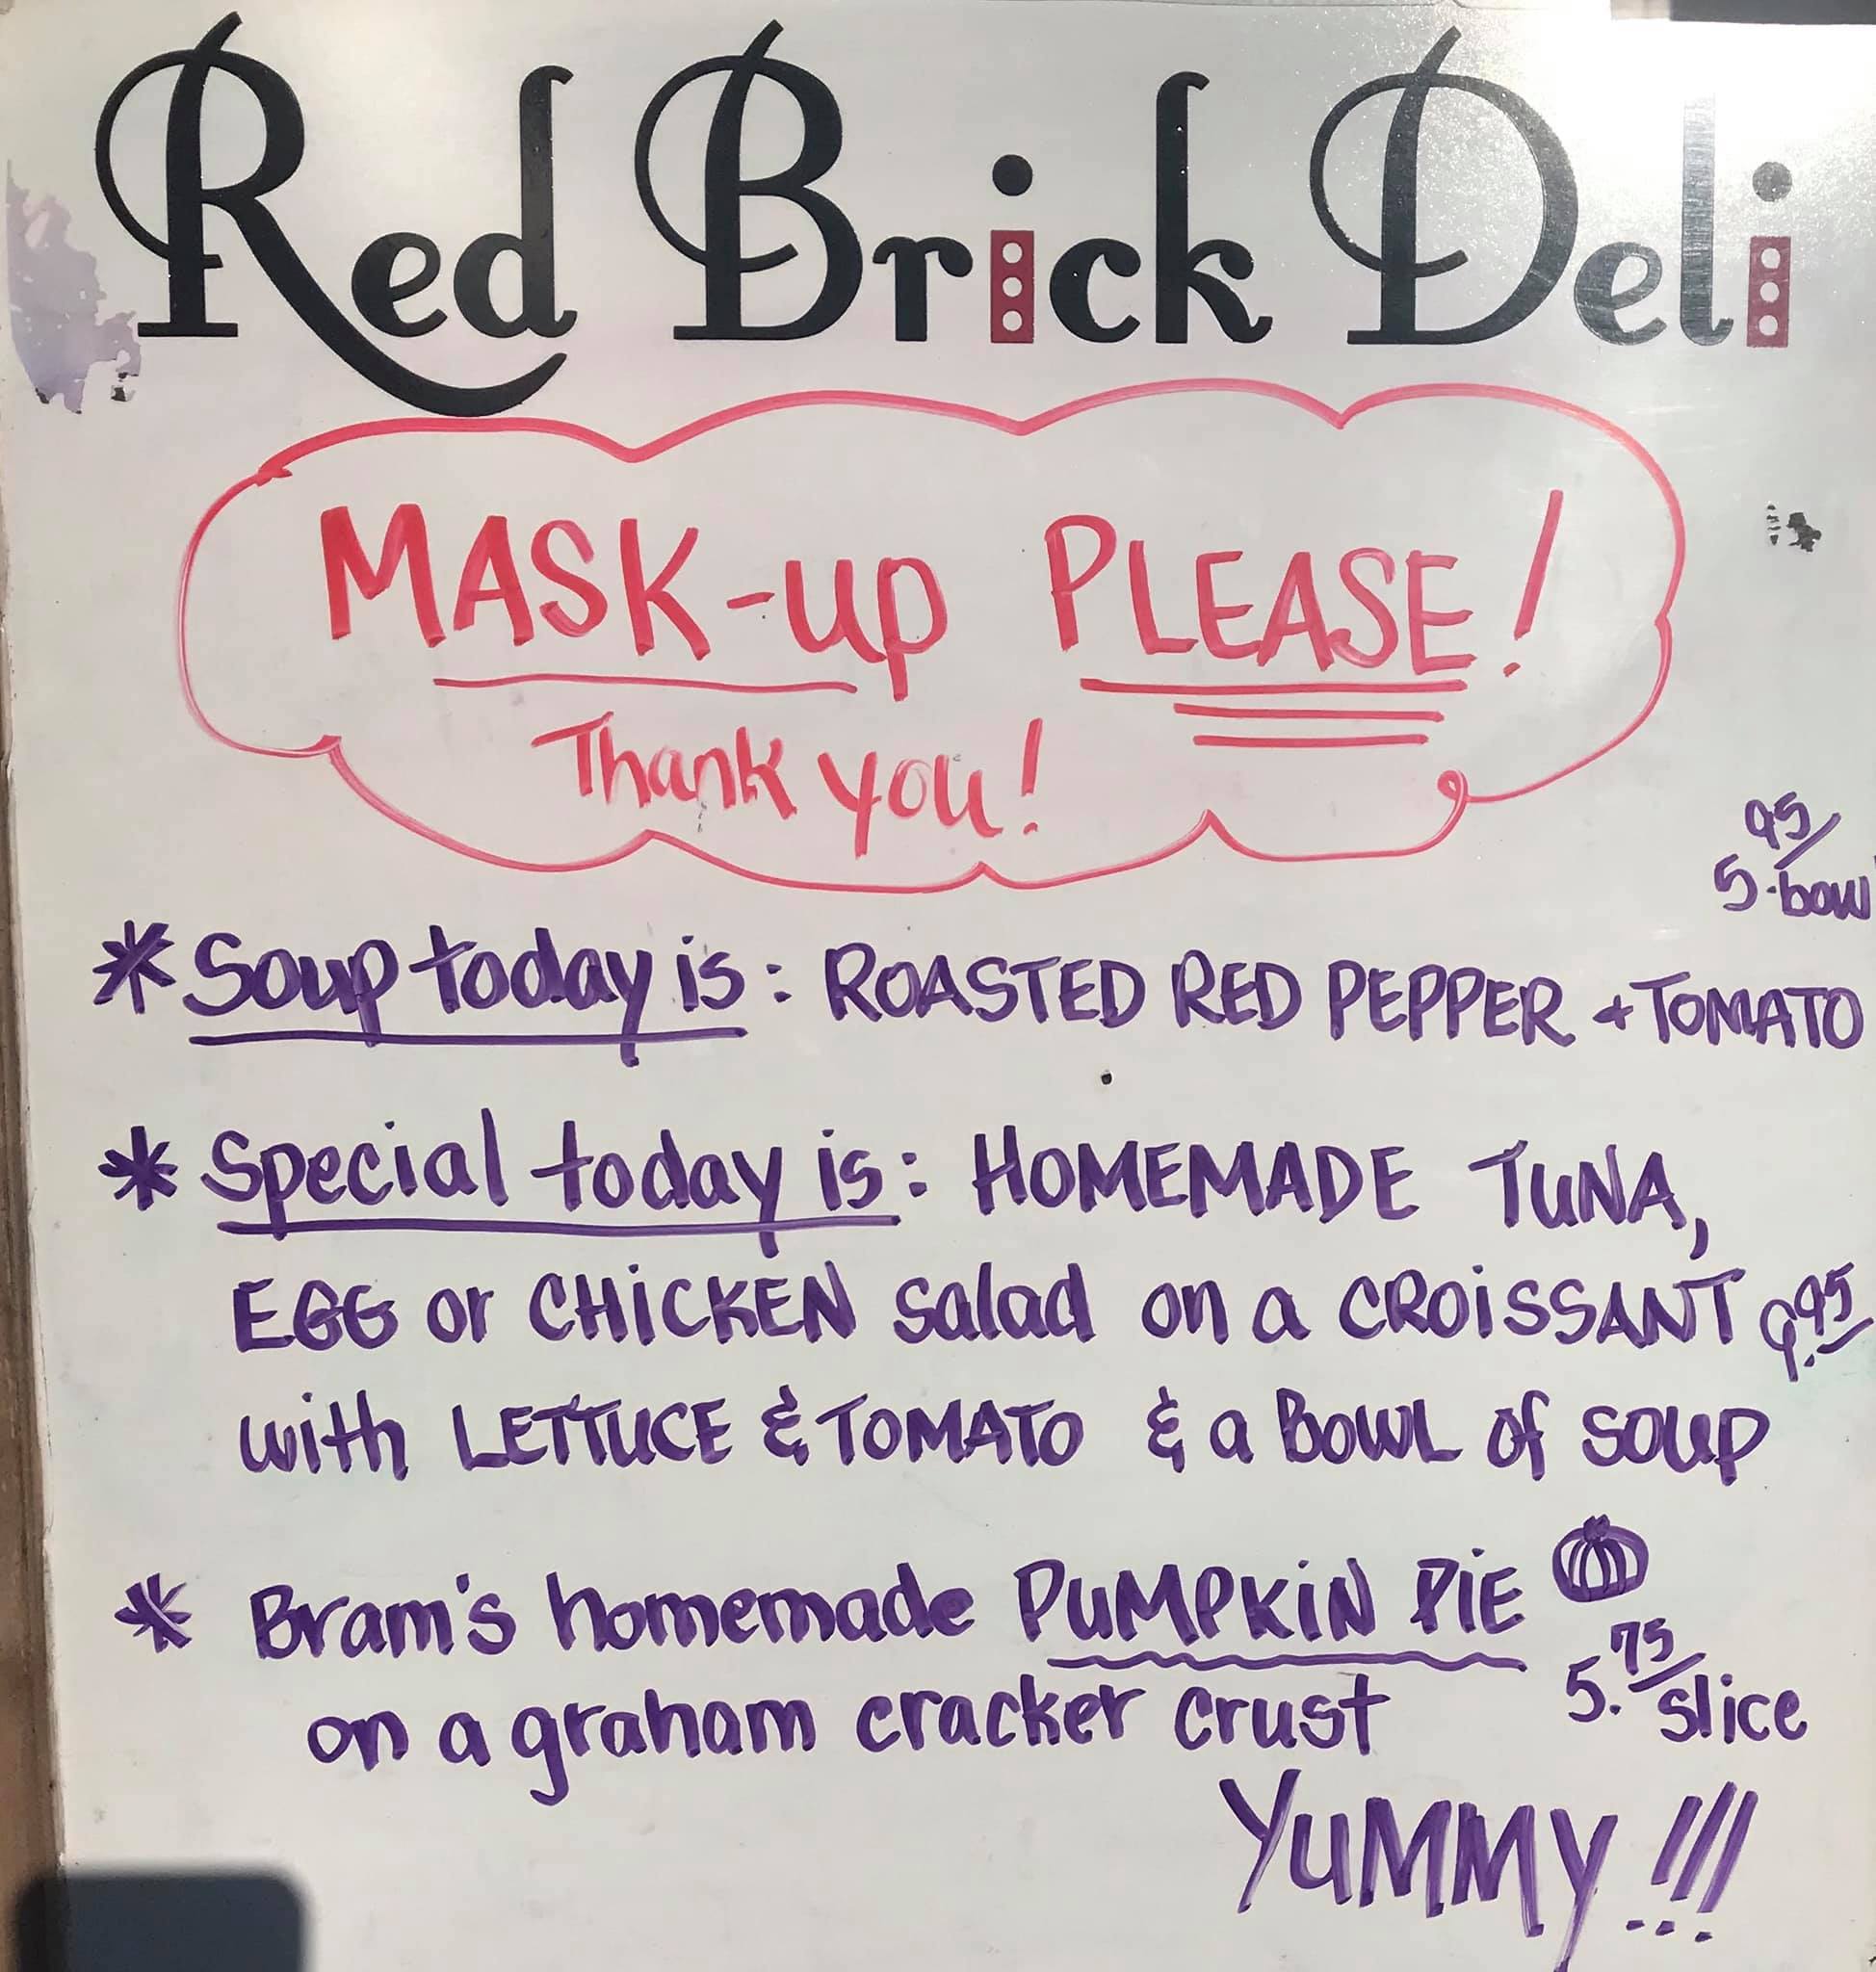 Red Brick Deli
MASK-up PLEASE!
Thank you!
5.95/bowl
* Soup today is: ROASTED RED PEPPER + TOMATO
* Special today is: HOMEMADE TUNA,
EGG or CHICKEN salad on a CROISSANT 9.95
with LETTUCE & TOMATO & a BOWL of SOUP
* Bram's homemade PUMPKIN PIE
on a graham cracker crust 5.75/slice
YUMMY!!!